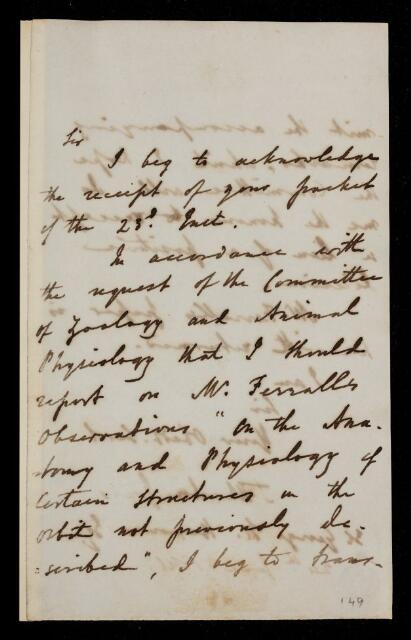 Sir
I beg to acknowledge
the receipt of your packet
of the 23d. Inst.
In accordance with
the request of the Committee
of Zoology and Animal
Physiology that I should
report on Mr. Ferralls
Observations "on the Ana-
-tomy and Physiology of
Certain Structures in the
orbit not previously de-
-scribed", I beg to trans-
149